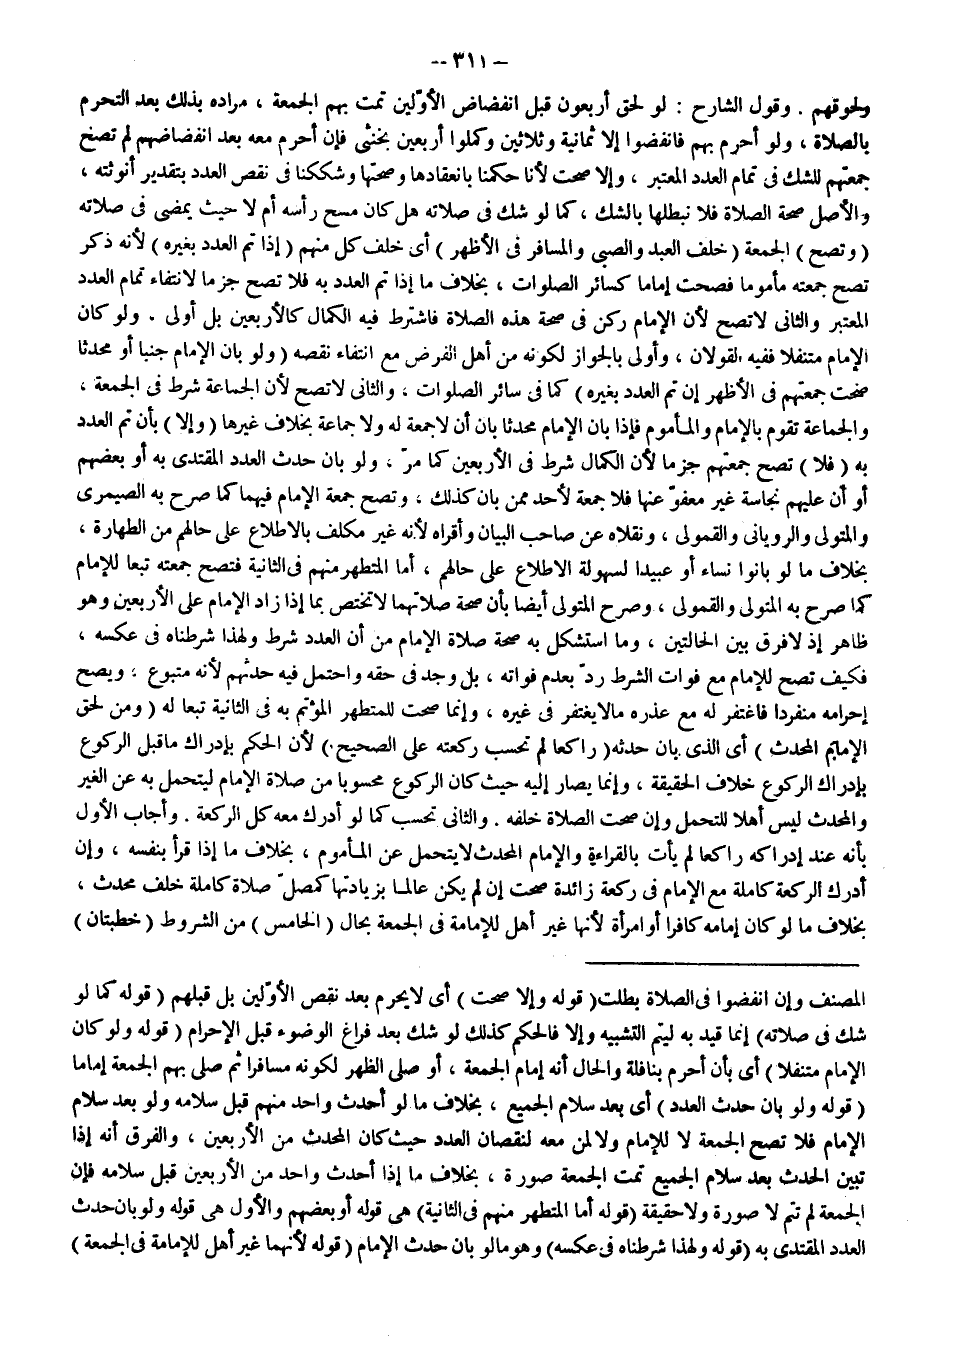 -- ٣١١ --
ولحوقهم . وقول الشارح : لو لحق أربعون قبل انفضاض الأوّلين تمت بهم الجمعة ، مراده بذلك بعد التحرم
بالصلاة ، ولو أحرم بهم فانفضوا إلا ثمانية وثلاثين وكملوا أربعين بخنثى فإن أحرم معه بعد انفضاضهم لم تصح
جمعتهم للشك فى تمام العدد المعتبر ، وإلا صحت لأنا حكمنا بانعقادها وصحتها وشككنا فى نقص العدد بتقدير أنوثته ،
والأصل صحة الصلاة فلا نبطلها بالشك ، كما لو شك فى صلاته هل كان مسح رأسه أم لا حيث يمضى فى صلاته
( وتصح ) الجمعة ( خلف العبد والصبى والمسافر فى الأظهر ) أى خلف كل منهم ( إذا تم العدد بغيره ) لأنه ذكر
تصح جمعته مأموما فصحت إماما كسائر الصلوات ، بخلاف ما إذا تم العدد به فلا تصح جزما لانتفاء تمام العدد
المعتبر والثانى لاتصح لأن الإمام ركن فى صحة هذه الصلاة فاشترط فيه الكمال كالأربعين بل أولى . ولو كان
الإمام متنفلا ففيه القولان ، وأولى بالجواز لكونه من أهل الفرض مع انتفاء نقصه ( ولو بان الإمام جنبا أو محدثا
صحت جمعتهم فى الأظهر إن تم العدد بغيره ) كما فى سائر الصلوات ، والثانى لاتصح لأن الجماعة شرط فى الجمعة ،
والجماعة تقوم بالإمام والمأموم فإذا بان الإمام محدثا بان أن لاجمعة له ولا جماعة بخلاف غيرها ( وإلا ) بأن تم العدد
به ( فلا ) تصح جمعتهم جزما لأن الكمال شرط فى الأربعين كما مرّ ، ولو بان حدث العدد المقتدى به أو بعضهم
أو أن عليهم نجاسة غير معفوّ عنها فلا جمعة لأحد ممن بان كذلك ، وتصح جمعة الإمام فيهما كما صرح به الصيمرى
والمتولى والرويانى والقمولى ، ونقلاه عن صاحب البيان وأقراه لأنه غير مكلف بالاطلاع على حالهم من الطهارة ،
بخلاف ما لو بانوا نساء أو عبيدا لسهولة الاطلاع على حالهم ، أما المتطهر منهم فى الثانية فتصح جمعته تبعا للإمام
كما صرح به المتولى والقمولى ، وصرح المتولى أيضا بأن صحة صلاتهما لاتختص بما إذا زاد الإمام على الأربعين وهو
ظاهر إذ لافرق بين الحالتين ، وما استشكل به صحة صلاة الإمام من أن العدد شرط ولهذا شرطناه فى عكسه ،
فكيف تصح للإمام مع فوات الشرط ردّ بعدم فواته ، بل وجد فى حقه واحتمل فيه حدثهم لأنه متبوع ؛ ويصح
إحرامه منفردا فاغتفر له مع عذره مالايغتفر فى غيره ، وإنما صحت للمتطهر المؤتم به فى الثانية تبعا له ( ومن لحق
الإمام المحدث ) أى الذى بان حدثه ( راكعا لم تحسب ركعته على الصحيح ) لأن الحكم بإدراك ماقبل الركوع
بإدراك الركوع خلاف الحقيقة ، وإنما يصار إليه حيث كان الركوع محسوبا من صلاة الإمام ليتحمل به عن الغير
والمحدث ليس أهلا للتحمل وإن صحت الصلاة خلفه . والثانى تحسب كما لو أدرك معه كل الركعة . وأجاب الأول
بأنه عند إدراكه راكعا لم يأت بالقراءة والإمام المحدث لايتحمل عن المأموم ، بخلاف ما إذا قرأ بنفسه ، وإن
أدرك الركعة كاملة مع الإمام فى ركعة زائدة صحت إن لم يكن عالما بزيادتها كمصلّ صلاة كاملة خلف محدث ،
بخلاف ما لو كان إمامه كافرا أو امرأة لأنها غير أهل للإمامة فى الجمعة بحال ( الخامس ) من الشروط ( خطبتان )
المصنف وإن انفضوا فى الصلاة بطلت ( قوله وإلا صحت ) أى لايحرم بعد نقص الأوّلين بل قبلهم ( قوله كما لو
شك فى صلاته ) إنما قيد به ليتم التشبيه وإلا فالحكم كذلك لو شك بعد فراغ الوضوء قبل الإحرام ( قوله ولو كان
الإمام متنفلا ) أى بأن أحرم بنافلة والحال أنه إمام الجمعة ، أو صلى الظهر لكونه مسافرا ثم صلى بهم الجمعة إماما
( قوله ولو بان حدث العدد ) أى بعد سلام الجميع ، بخلاف ما لو أحدث واحد منهم قبل سلامه ولو بعد سلام
الإمام فلا تصح الجمعة لا للإمام ولا لمن معه لنقصان العدد حيث كان المحدث من الأربعين ، والفرق أنه إذا
تبين الحدث بعد سلام الجميع تمت الجمعة صورة ، بخلاف ما إذا أحدث واحد من الأربعين قبل سلامه فإن
الجمعة لم تتم لا صورة ولاحقيقة ( قوله أما المتطهر منهم فى الثانية ) هى قوله أو بعضهم والأول هى قوله ولو بان حدث
العدد المقتدى به ( قوله ولهذا شرطناه فى عكسه ) وهو مالو بان حدث الإمام ( قوله لأنهما غير أهل للإمامة فى الجمعة )